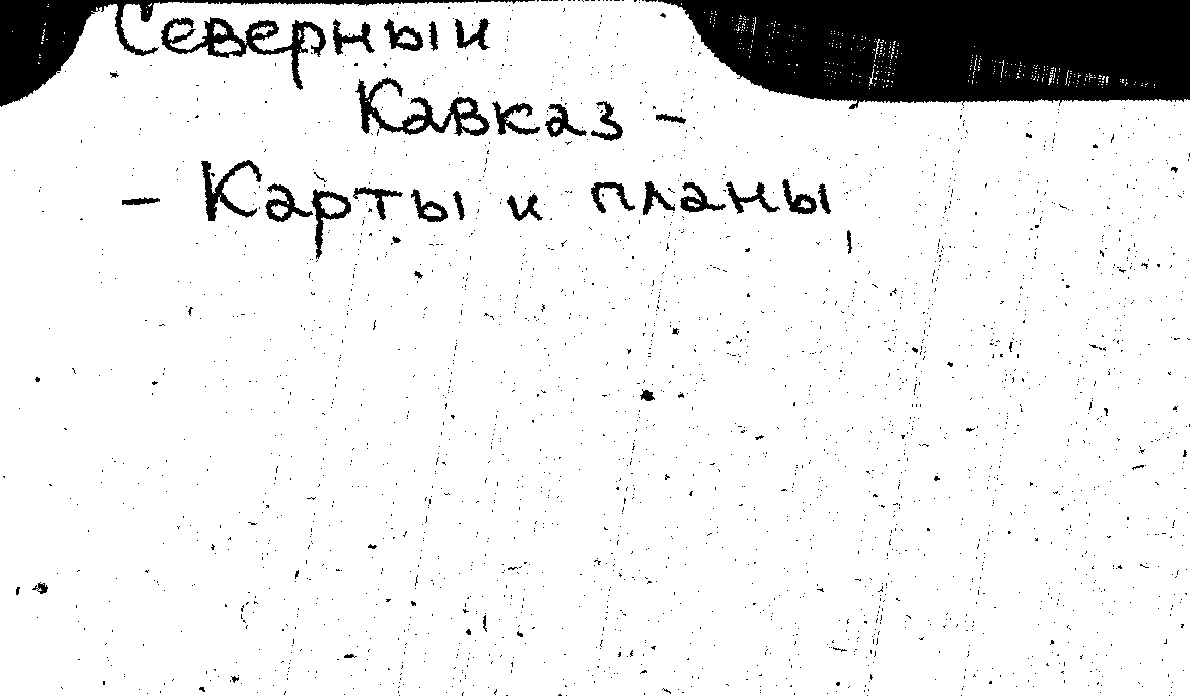 Северный
Кавказ –
– Карты и планы